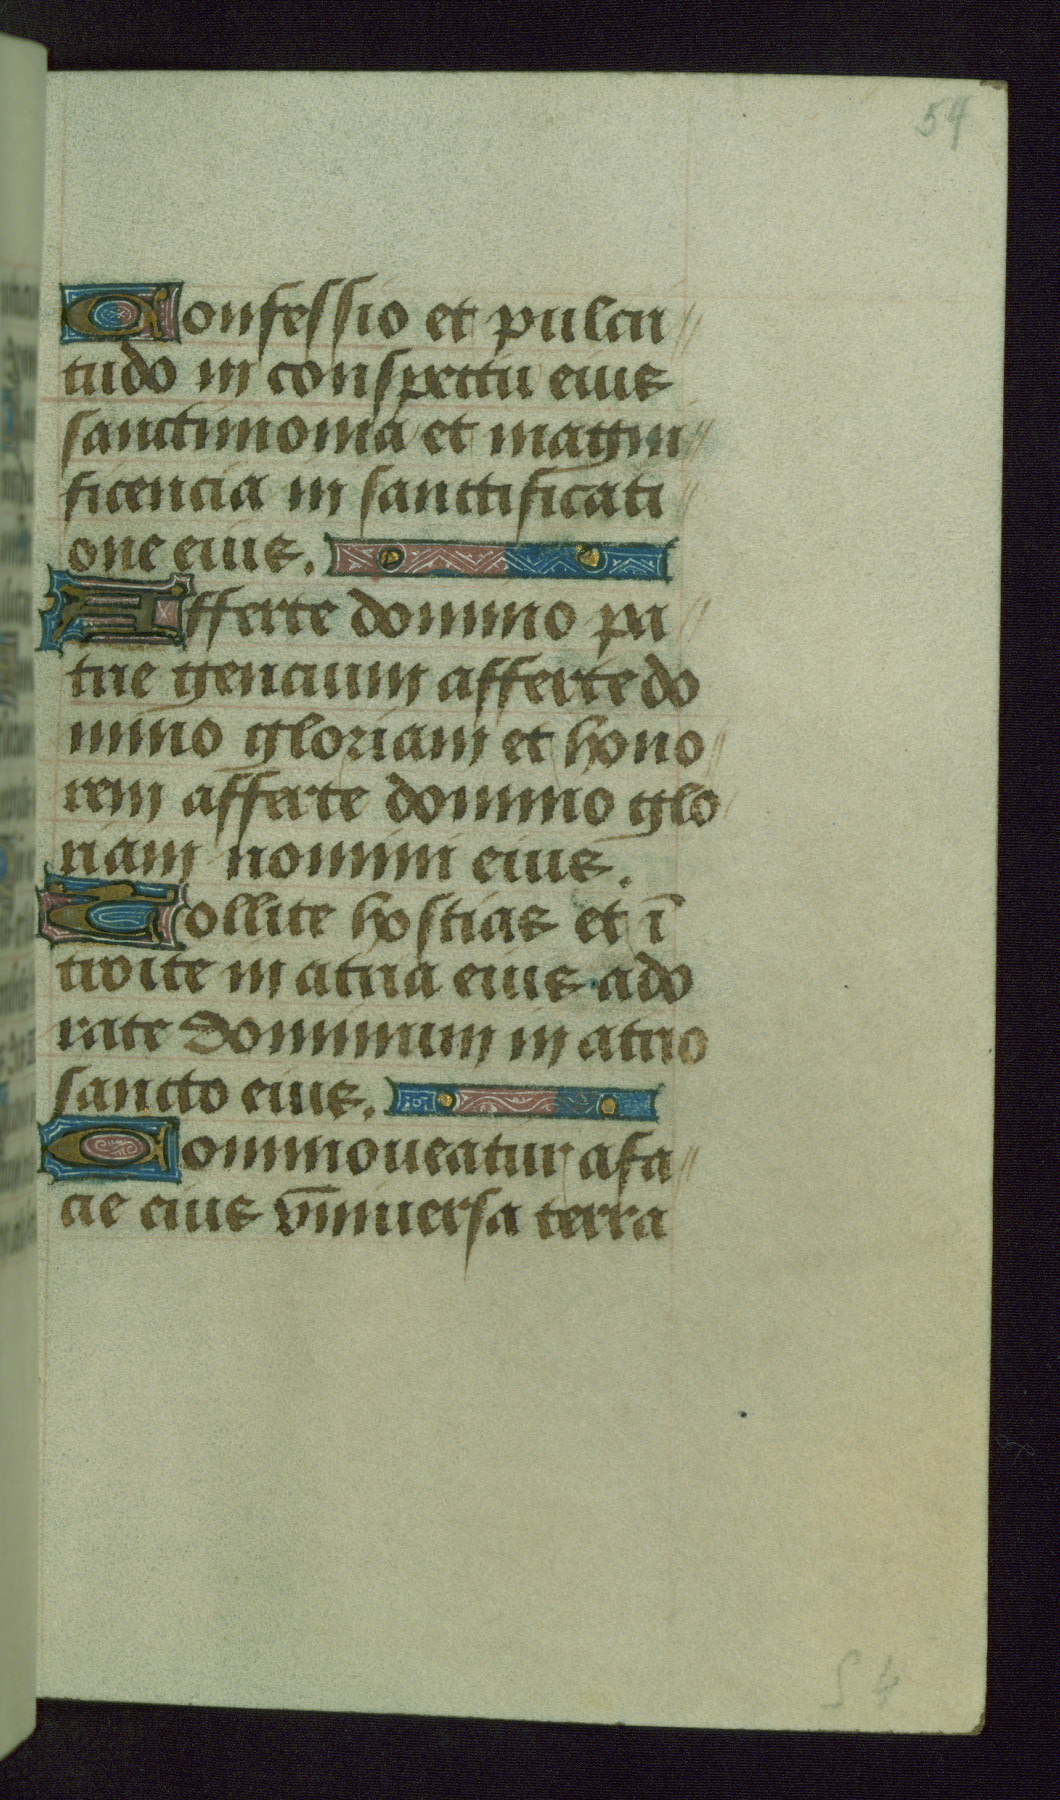 54
Confessio et pulcri
tudo in conspectu eius
sanctimonia et magni
ficencia in sanctificati
one eius.
Afferte domino pa
trie gencium afferte do
mino gloriam et hono
rem afferte domino glo
riam nomini eius.
Tollite hostias et ī
troite in atria eius ado
rate Dominum in atrio
sancto eius.
Commoueatur afa
cie eius vniuersa terra
54